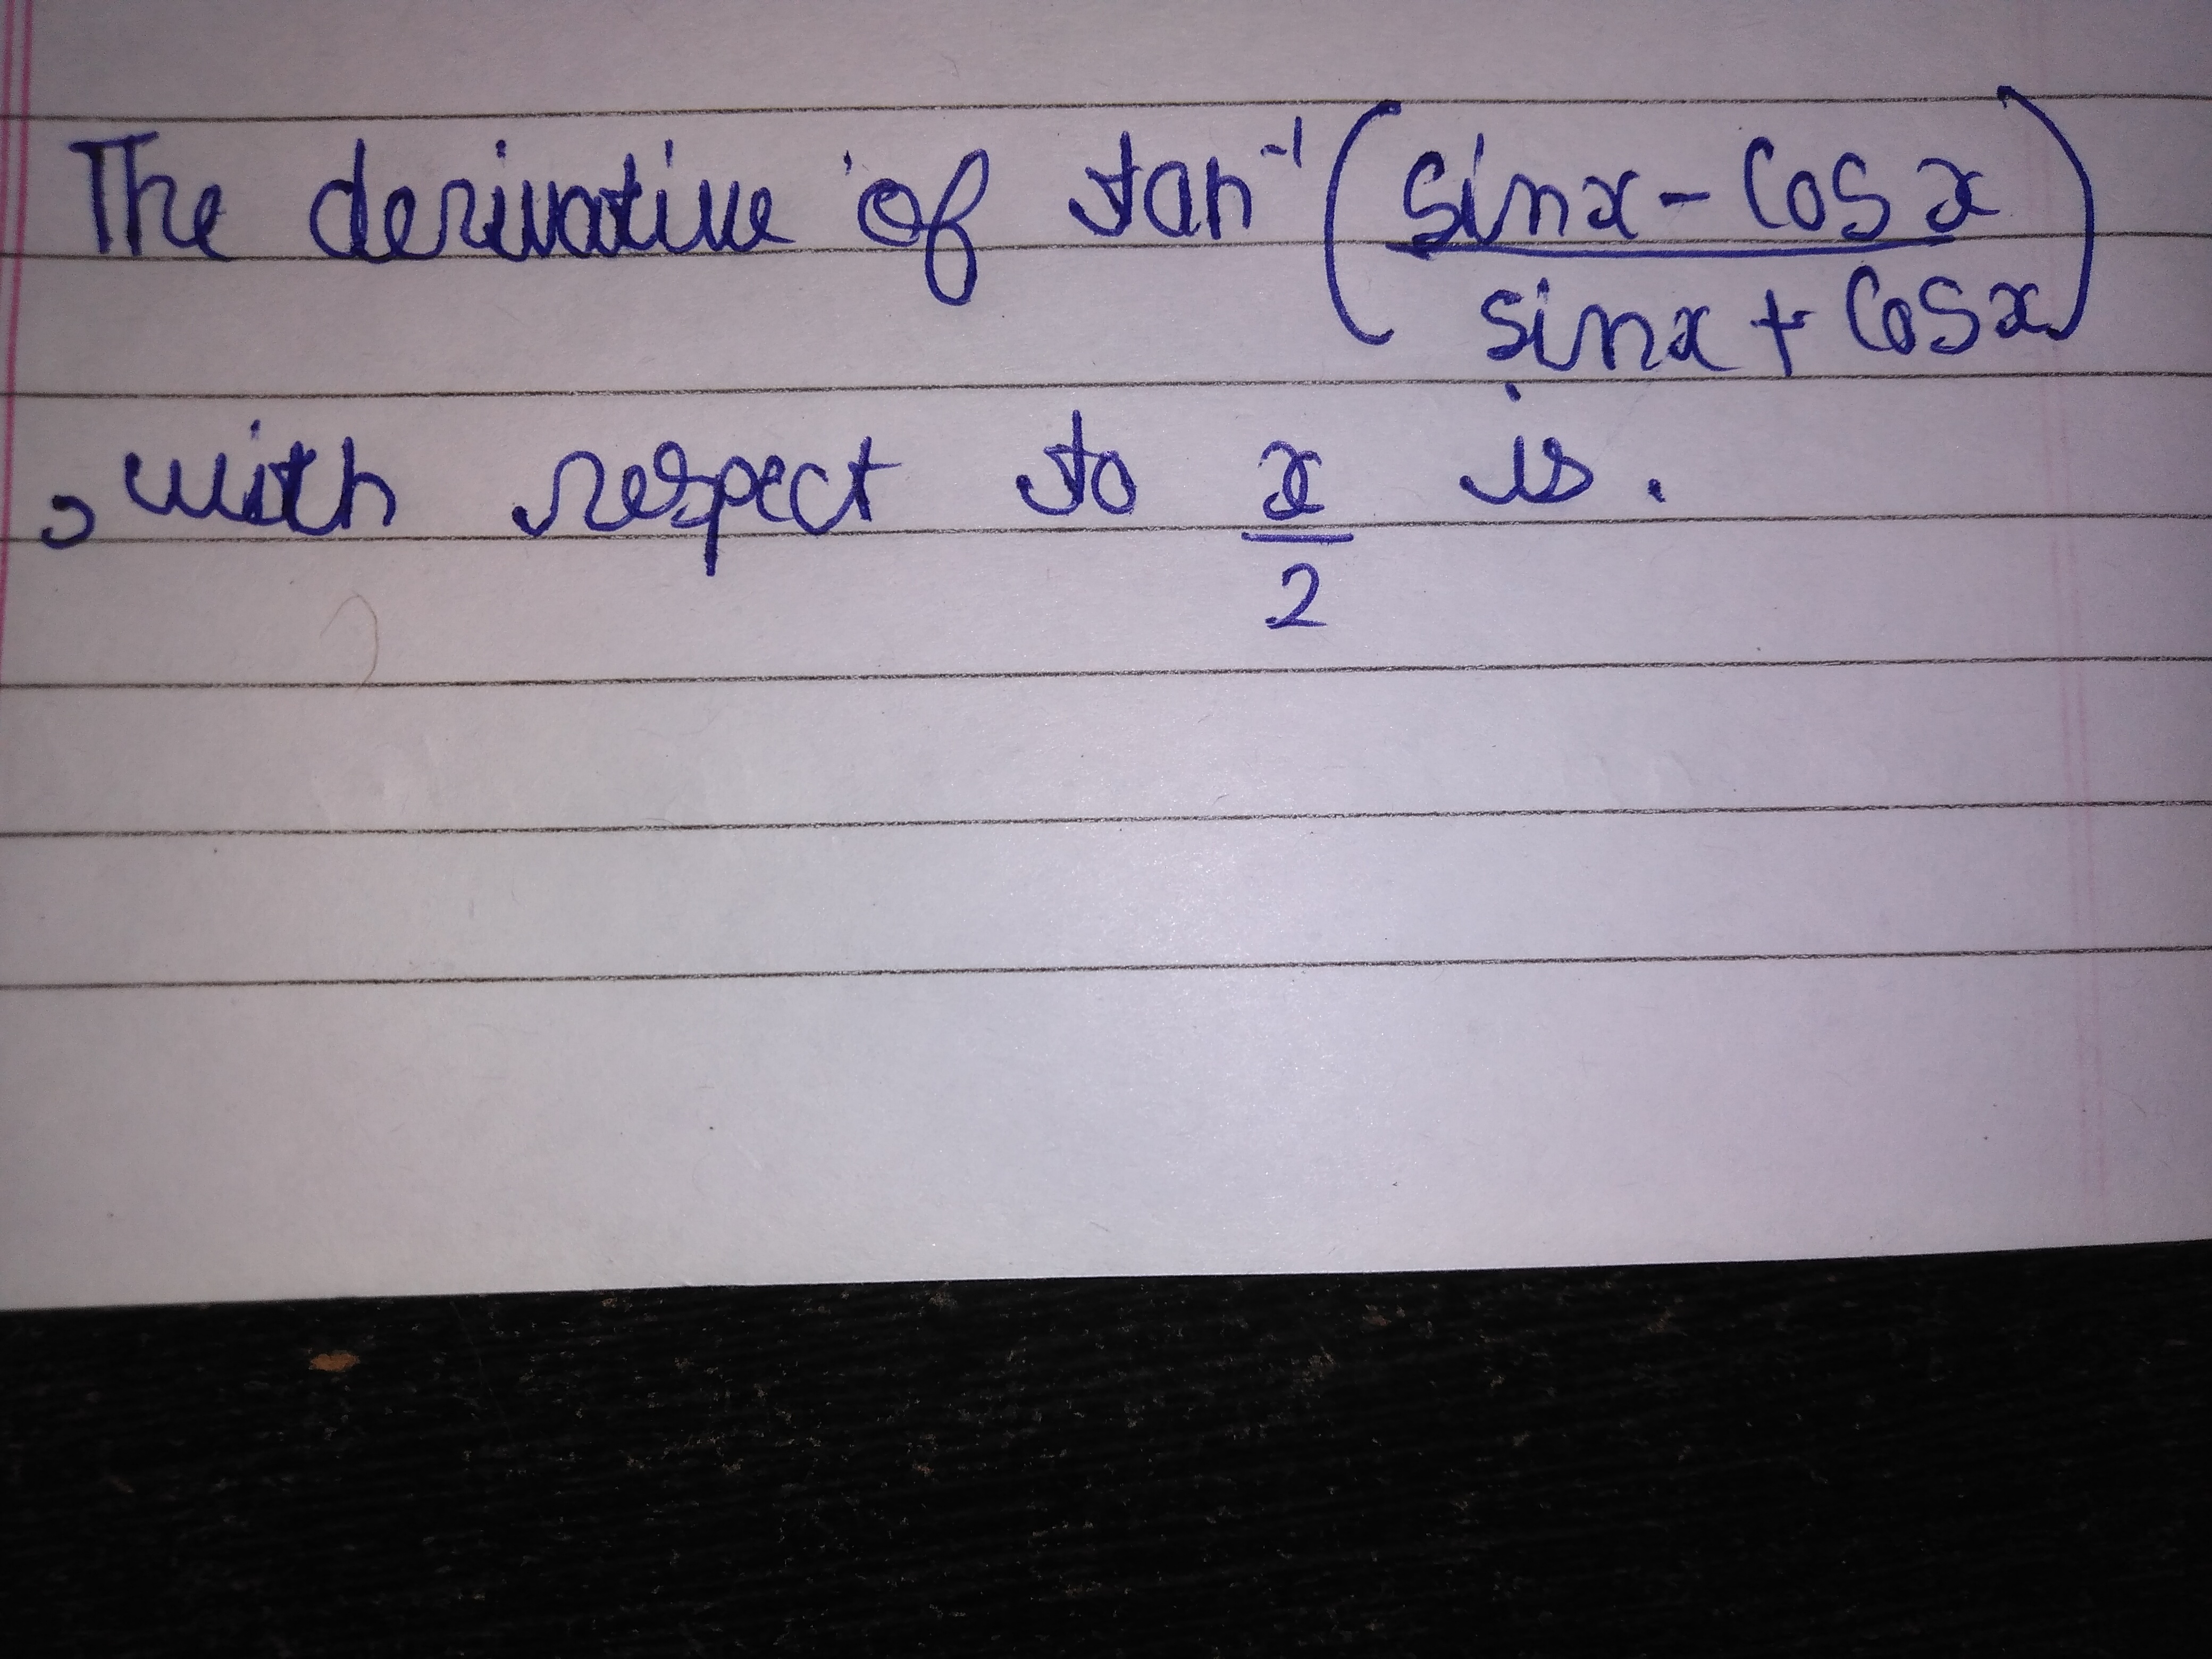 The derivative of tan⁻¹(sinx - Cosx / sinx + Cosx)
, with respect to x/2 is.